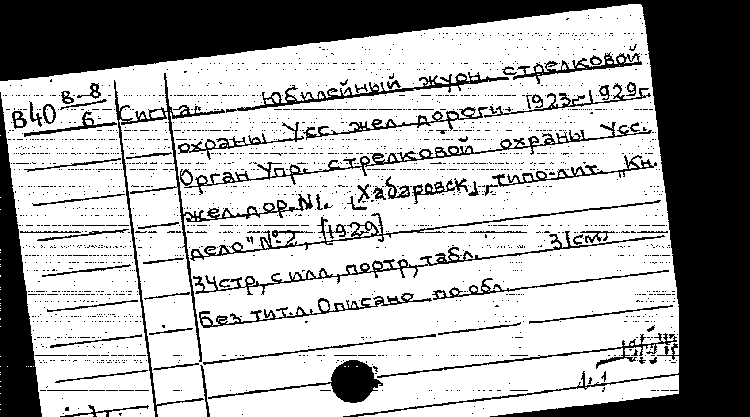 В40 В-8/6 Сигнал. Юбилейный журн. стрелковой
охраны Усс. жел. дороги. 1923г.-1929г.
Орган Упр. стрелковой охраны Усс.
жел. дор. №1. [Хабаровск], типо-лит. "Кн.
дело" №2, [1929].
34стр, с илл, портр, табл. 31см.
Без тит. л. Описано по обл.